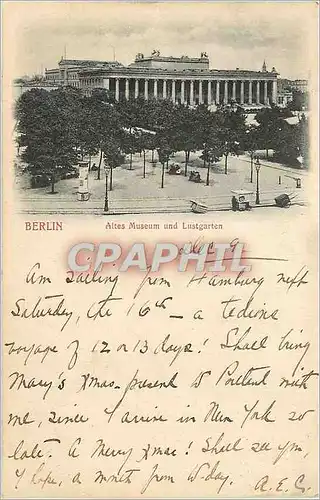 BERLIN
Altes Museum und Lustgarten
CPAPHIL
Dec 9
Am sailing from Hamburg next
Saturday, the 16th — a tedious
voyage of 12 or 13 days! Shall bring
Mary's Xmas-present to Portland with
me, since I arrive in New York so
late. A Merry Xmas! Shall see you,
I hope, a month from to-day. A.E.G.